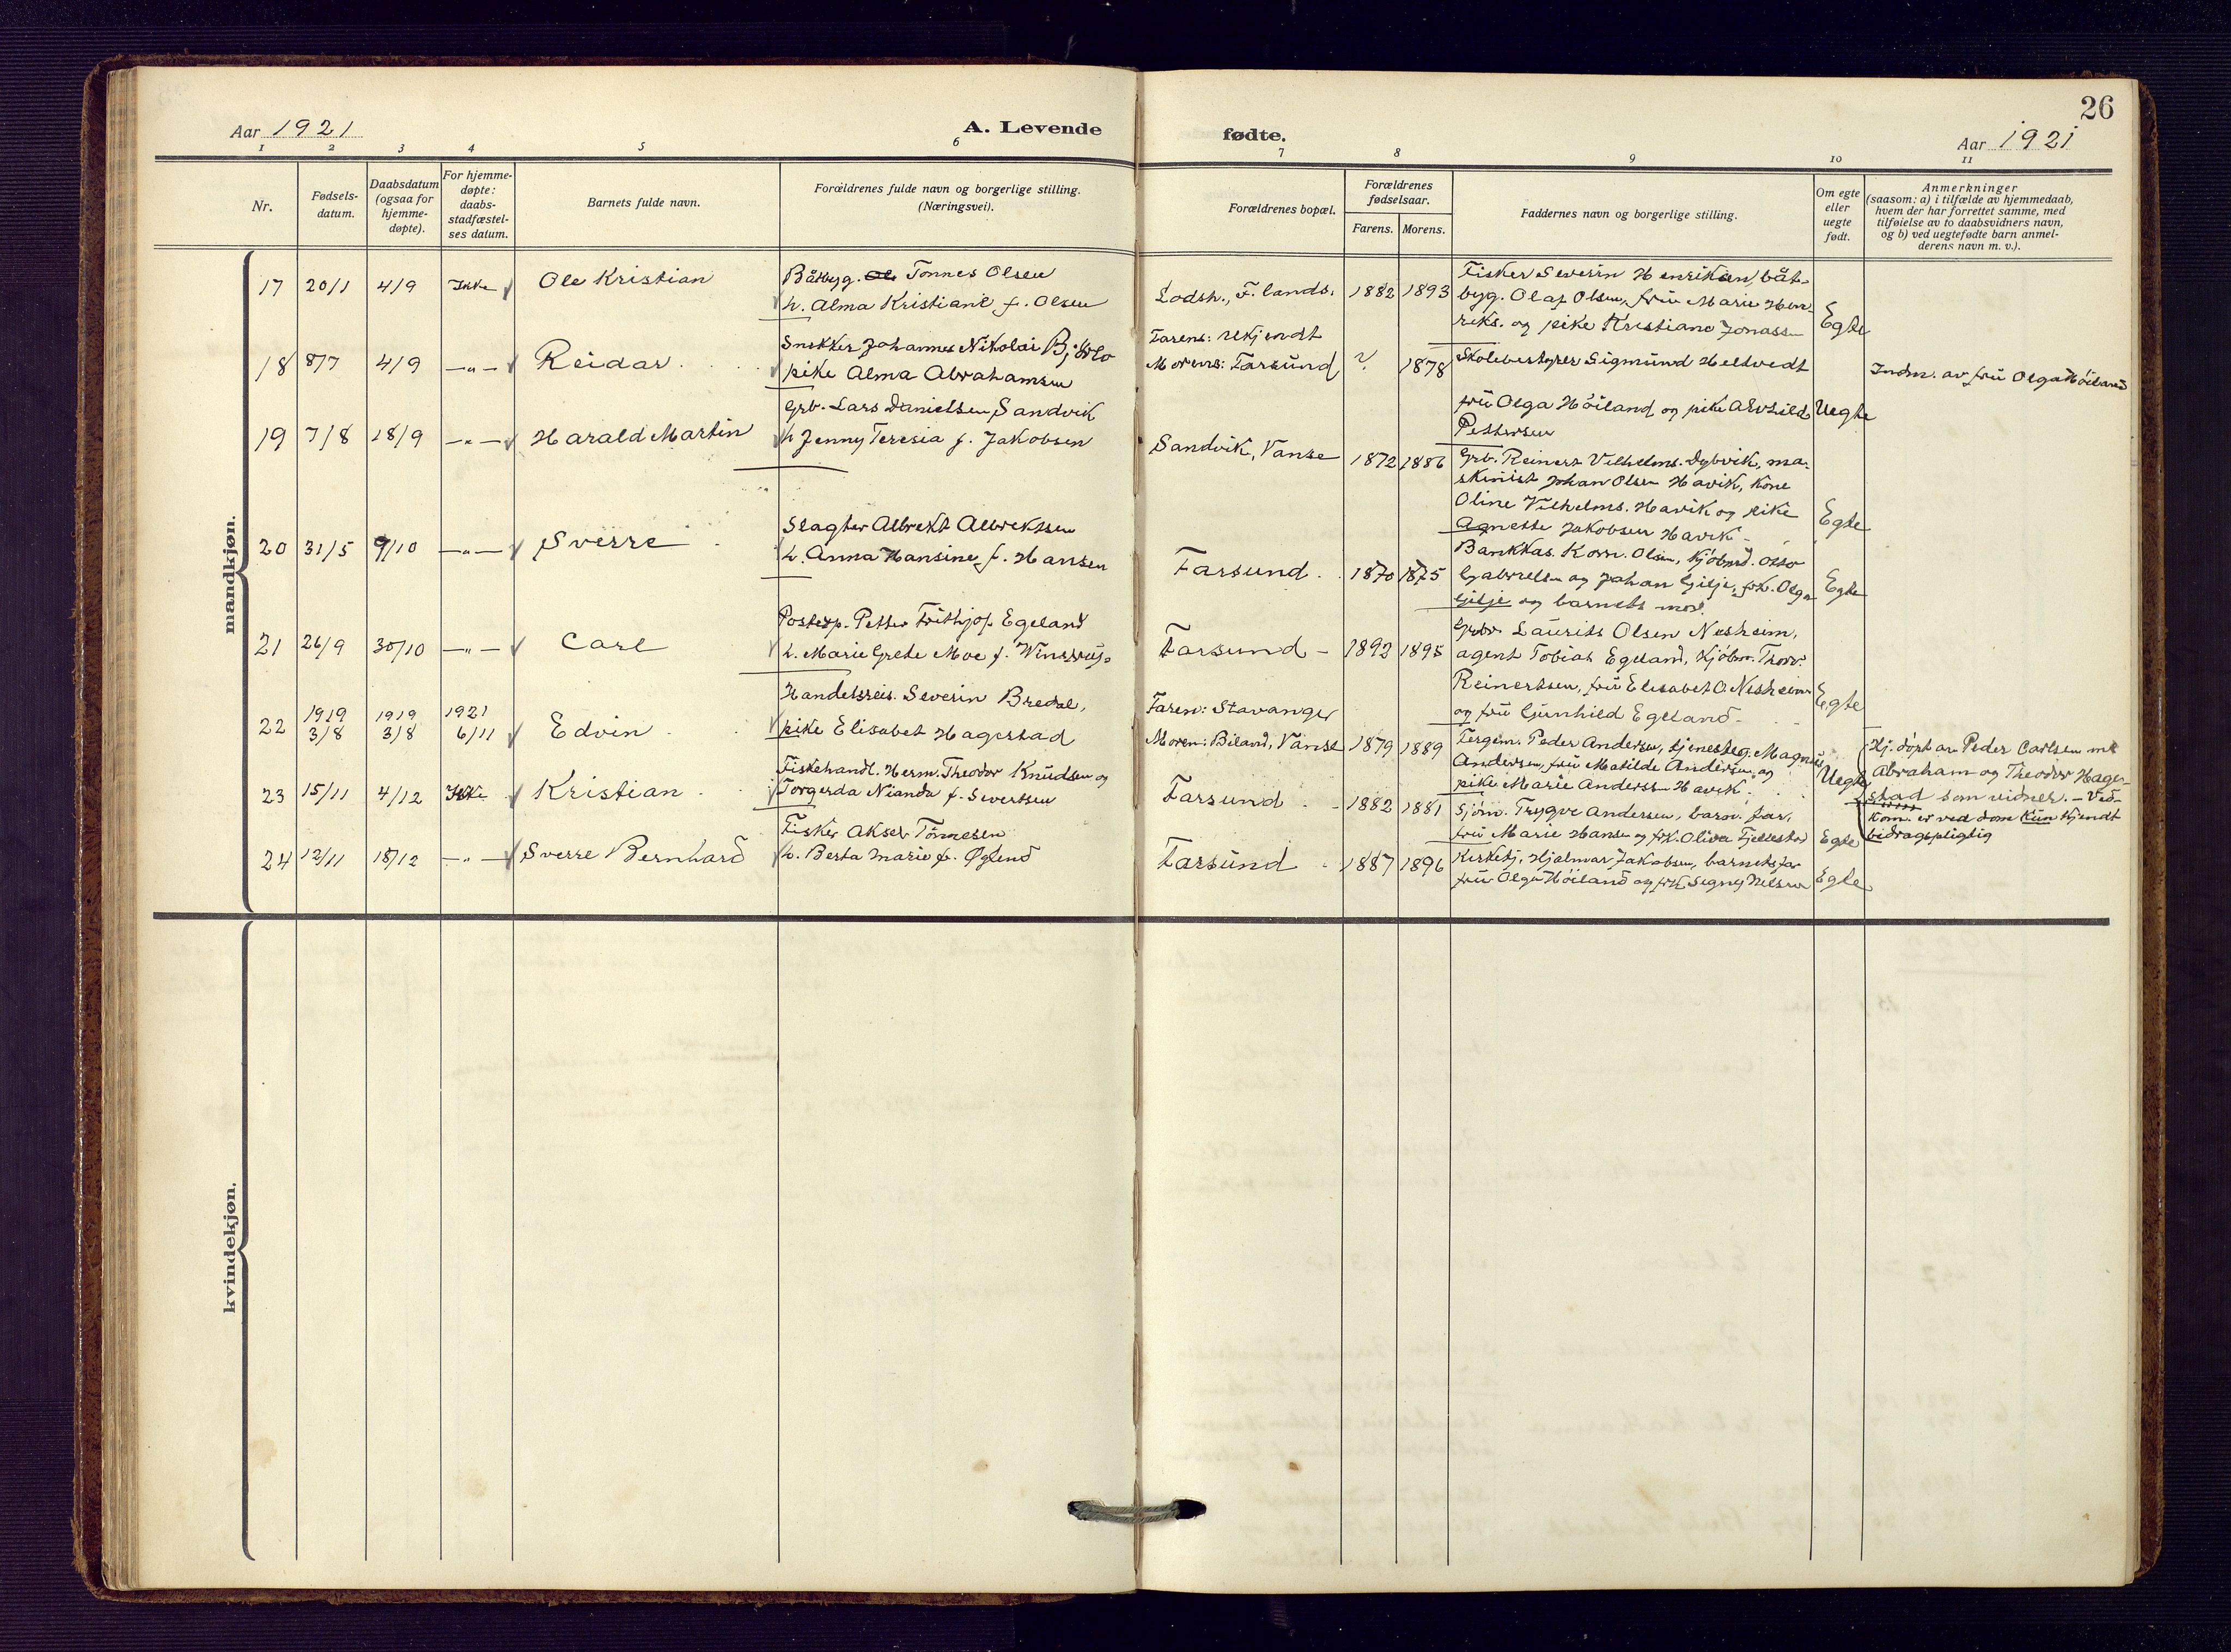 26
Aar 1921
A. Levende
fødte.
Aar 1921
1 2 3 4 5 6 7 8 9 10 11
Nr.
Fødsels-
datum.
Daabsdatum
(ogsaa for
hjemme-
døpte).
For hjemme-
døpte:
daabs-
stadfæstel-
ses datum.
Barnets fulde navn.
Forældrenes fulde navn og borgerlige stilling.
(Næringsvei).
Forældrenes bopæl.
Forældrenes
fødselsaar.
Farens. Morens.
Faddernes navn og borgerlige stilling.
Om egte
eller
uegte
født.
Anmerkninger
(saasom: a) i tilfælde av hjemmedaab,
hvem der har forrettet samme, med
tilføielse av to daabsvidners navn,
og b) ved uegtefødte barn anmel-
derens navn m. v.).
mandkjøn.
17 20/1 4/9 Ikke Ole Kristian
Båtbyg. Ole Tonnes Olsen
h. Alma Kristiane f. Olsen
Lodsh., F. lands. 1882 1893
Fisker Severin Henriksen, båt-
byg. Olaf Olsen, frü Marie Hen-
riks. og pike Kristiane Jonass
Egte
18 8/7 4/9 -„- Reidar
Snekker Johannes Nikolai
pike Alma Abrahamsen
Farens: ukjendt
Morens: Farsund ? 1878
Skolebestyrer Sigmund Heltvedt
frü Olga Höiland og pike Alvhild
Pettersen
Uegte
Indm. av frü Olga Höiland
19 7/8 18/9 -„- Harald Martin
Grb. Lars Danielsen Sandvik
h. Jenny Teresia f. Jakobsen
Sandvik, Vanse 1872 1886
Grb. Reinert Vilhelms. Dybvik, ma-
skinist Johan Olsen Havik, kone
Oline Vilhelms. Havik og pike
Agnette Jakobsen Havik
Egte
20 31/5 9/10 -„- Sverre
Slagter Albrekt Albrektsen
h. Anna Hansine f. Hansen
Farsund 1870 1875
Bankkas. Korn. Olsen, kjøbmd. Otto
Gabrielsen og Johan Gilje, frk. Olga
Gilje og barnets mor.
Egte
21 26/9 30/10 -„- Carl
Postexp. Petter Frithjof Egeland
h. Marie Grete Moe f.
Farsund 1892 1895
Grbr. Laurits Olsen Nesheim,
agent Tobias Egeland, Kjöbm. Thorv.
Reinertsen, frü Elisabet O. Nesheim
og frü Gunhild Egeland
Egte
22 1919 3/8 1919 3/8 1921 6/11 Edvin
Handelsreis. Severin Bredal,
pike Elisabet Hagestad
Faren: Stavanger
Moren: Biland, Vanse 1879 1889
Fergem. Peder Andersen, tjenesteg. Magnus
Andersen, frü Matilde Andersen og
pike Marie Anderss Havik
Uegte
Hj. døpt av Peder Carlsen med
Abraham og Theodor Hage-
stad som vidner. - Ved-
kom. er ved dom kün kjendt
bidragspligtig
23 15/11 4/12 Ikke Kristian
Fiskehandl. Herm. Theodor Knudsen og
Torgerda Nianda f. Sivertsen
Farsund 1882 1881
Sjöm. Trygve Andersen, barn. far,
frü Marie Hansen og frk. Oliva Fjellestad
Egte
24 12/11 18/12 -„- Sverre Bernhard
Fisker Aksel Tönnesen
h. Berta Marie f. Øglend
Farsund 1887 1896
Kirketj. Hjalmar Jakobsen, barnets far
frü Olga Höiland og frk. Signy Nelsen
Egte
kvindekjøn.